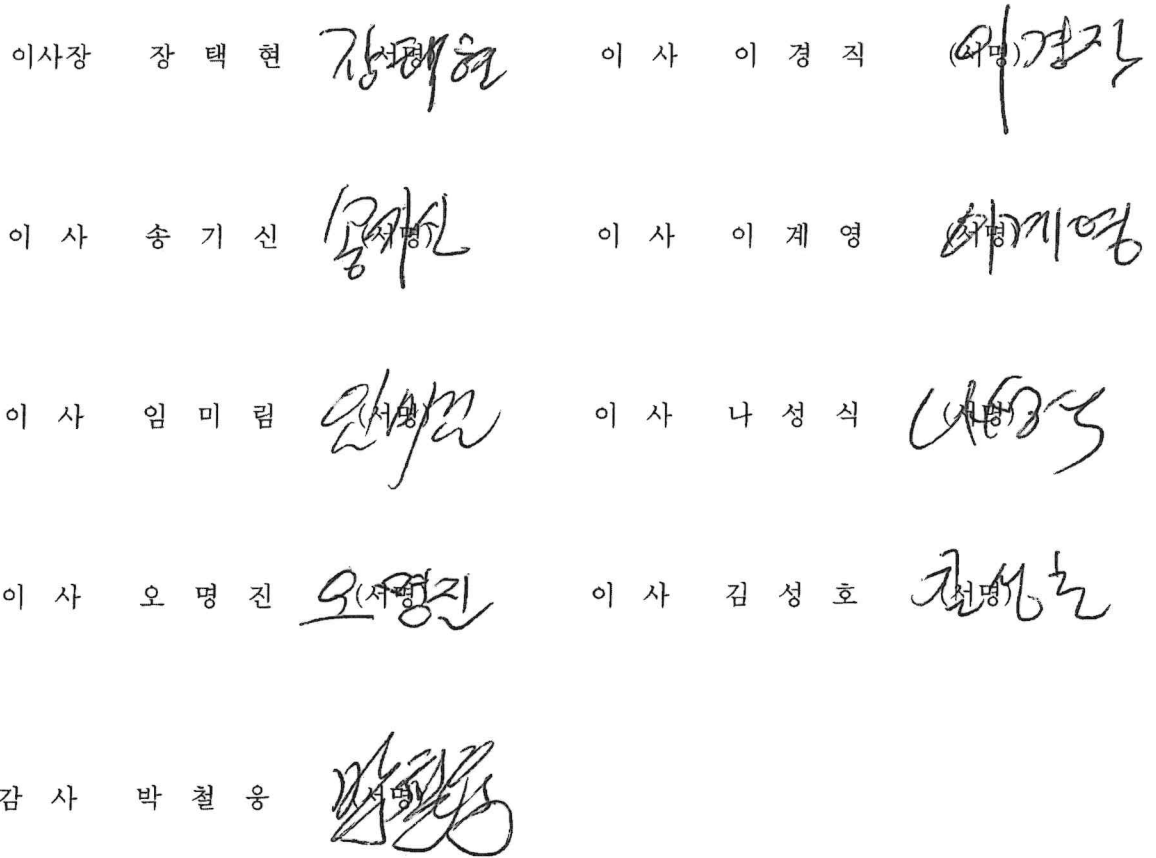 이사장 장 택 현 (서명) 장택현 이 사 이 경 직 (서명) 이경직
이 사 송 기 신 (서명) 송기신 이 사 이 계 영 (서명) 이계영
이 사 임 미 림 (서명) 이 사 나 성 식 (서명)
이 사 오 명 진 (서명) 오명진 이 사 김 성 호 (서명)
감 사 박 철 웅 (서명)